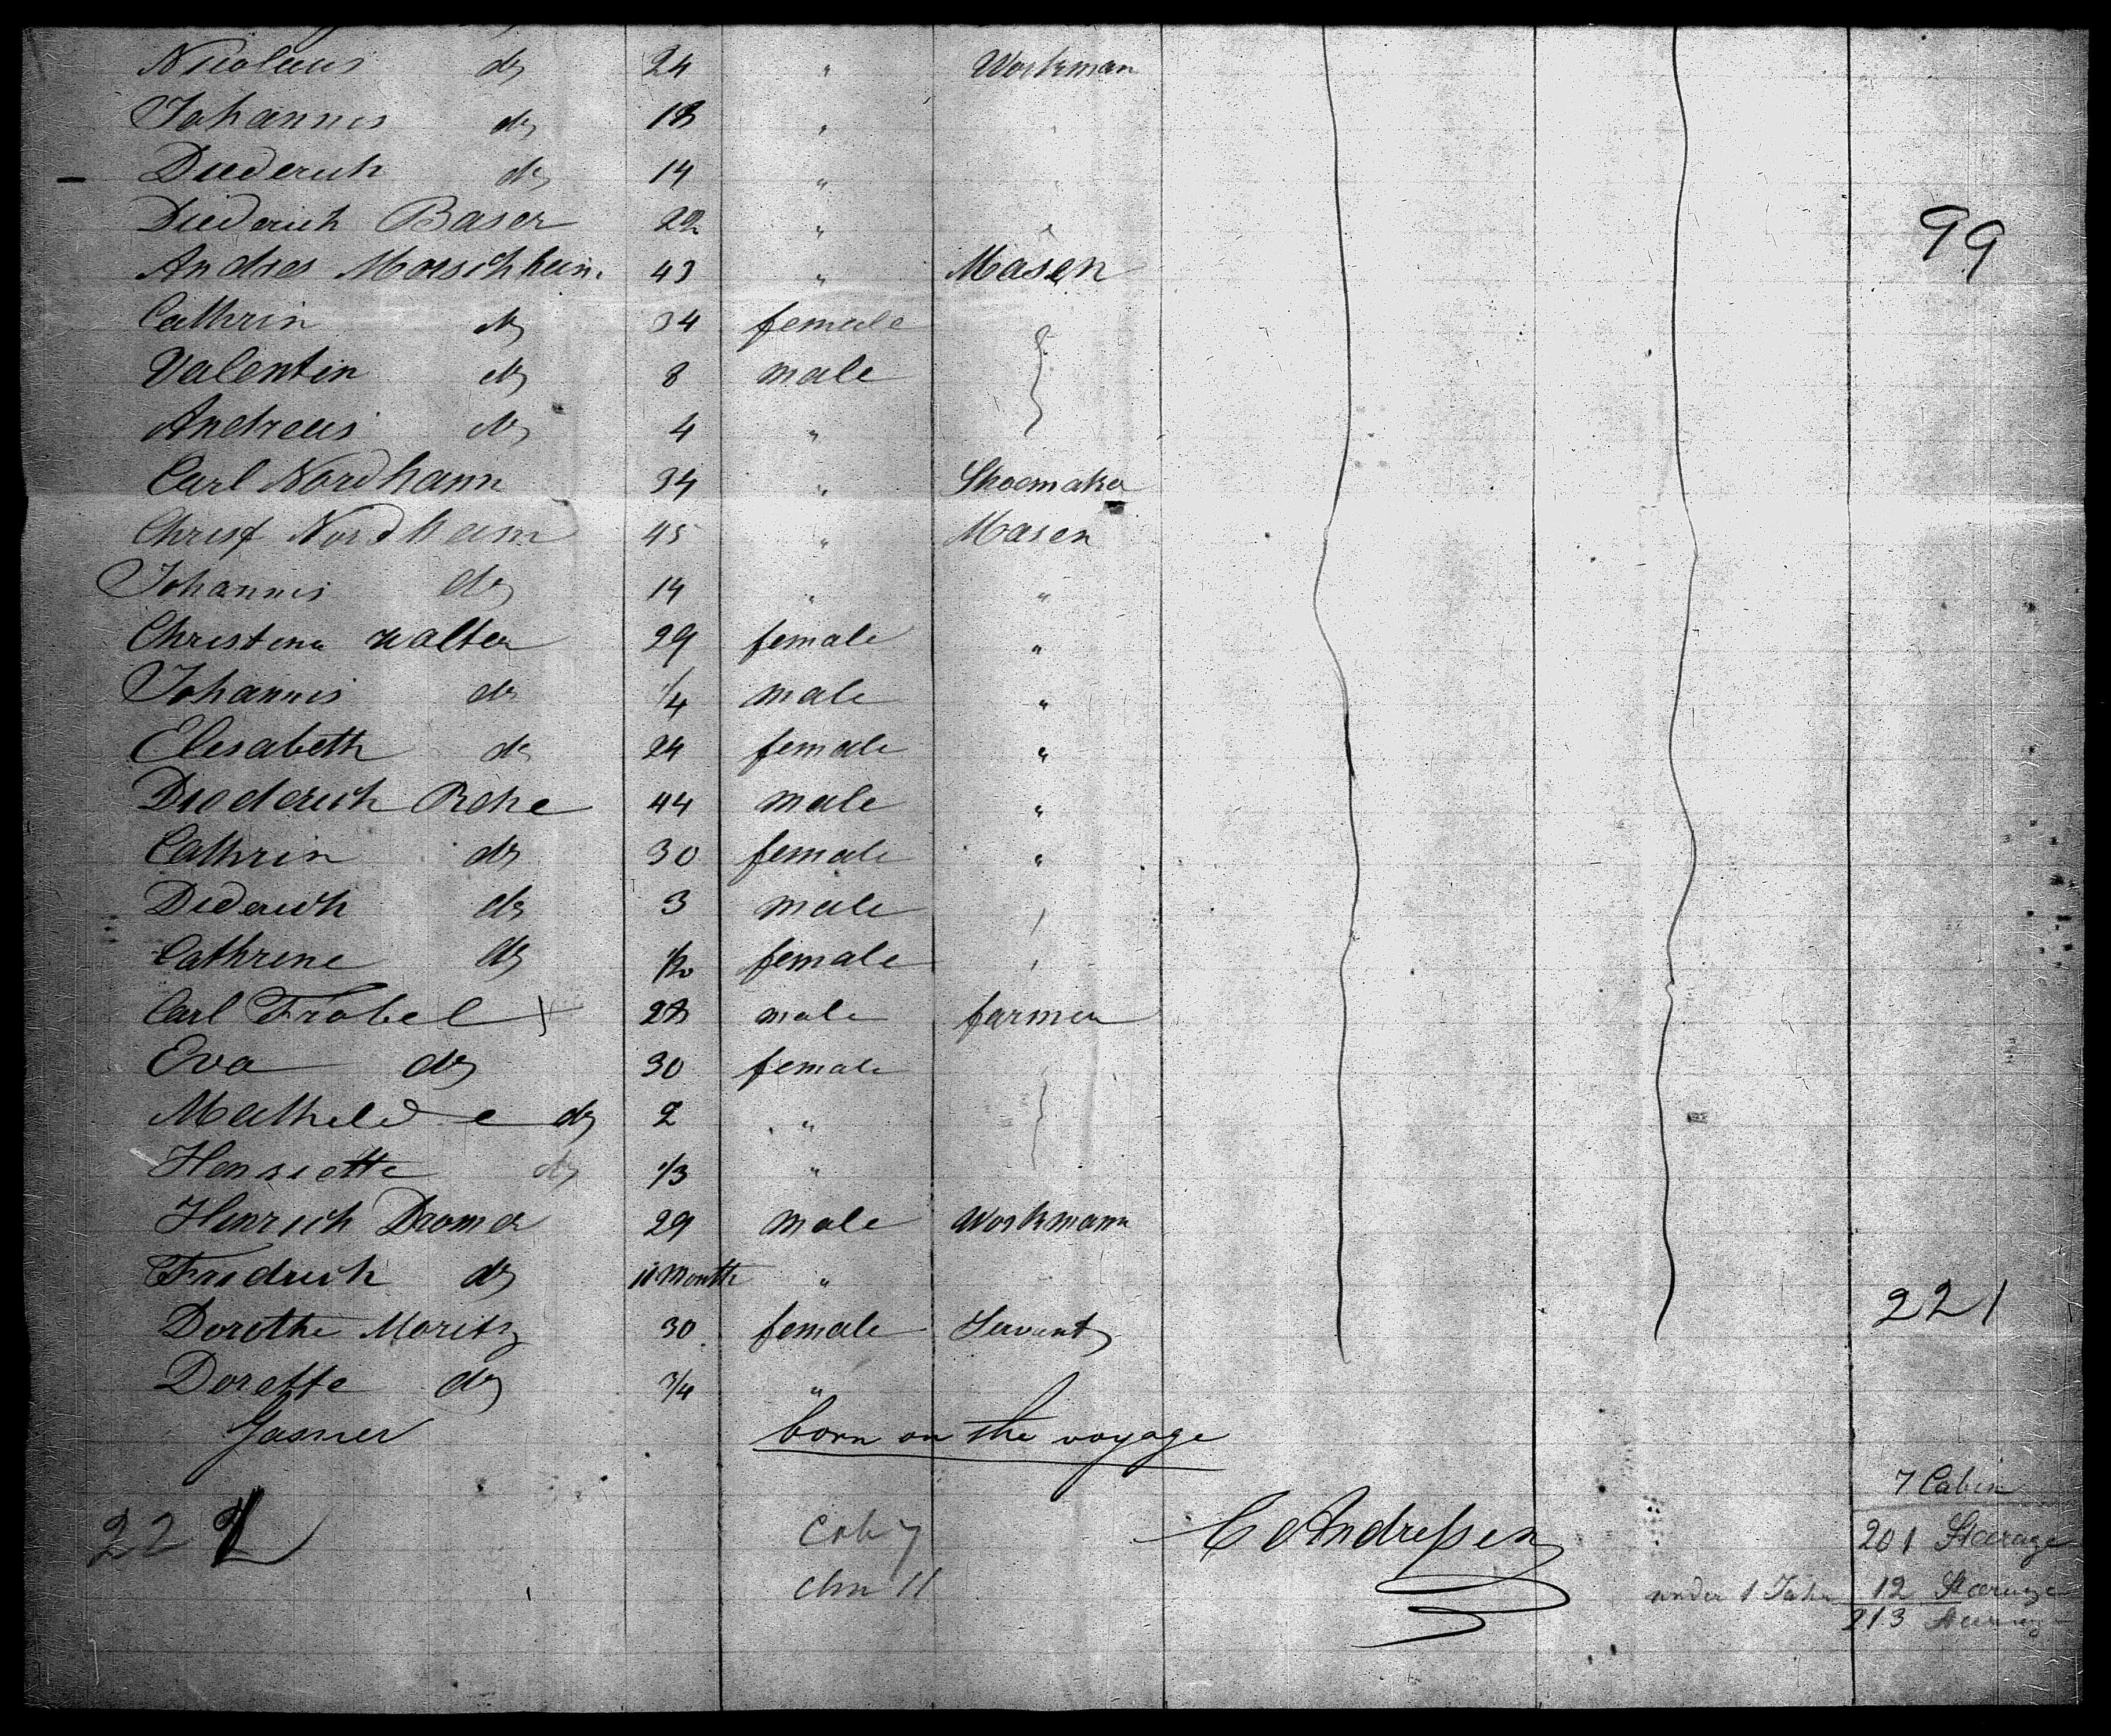 Nicolaus do 24 " Workman
Johannis do 18 "
Diederich do 14 "
Diederich Baser 22 "
Andres Morschheim 43 " Masen
99
Cathrin do 34 female
Valentin do 8 male
Andreas do 4 "
Carl Nordhann 34 " Shoemaker
Christ Nordheim 45 " Masen
Johannis do 14 " "
Christina Walter 29 female "
Johannis do 1/4 male "
Elesabeth do 24 female "
Diederich Rohe 44 male "
Cathrin do 30 female "
Diderich do 3 male
Cathrine do female
Carl Frobel 28 male farmer
Eva do 30 female
Mathelde do 2 "
Henriette do 1/3 "
Hinrich Dromer 29 male Workmann
Fredrich do 10 Month "
221
Dorothe Moritz 30 female Servant
Dorette do 3/4 "
Gasner born on the voyage
7 Cabin
222 Cab 7 C Andreßen 201 Steerage
chn 11 under 1 Jahr 12 Steerage
213 Steerage